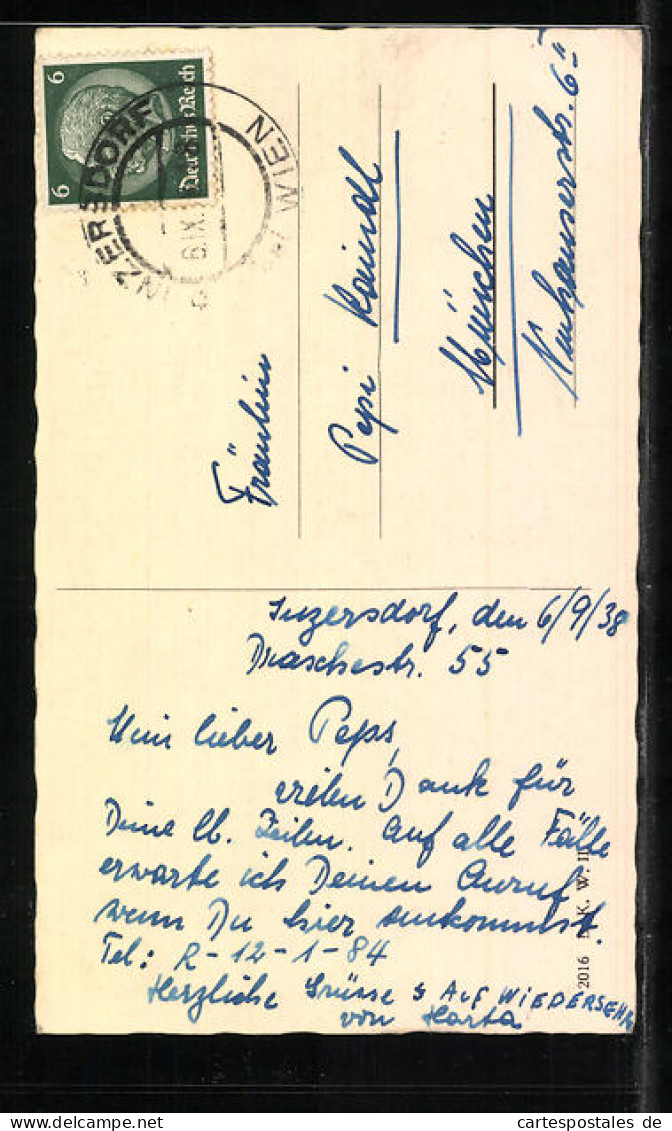 6
6
Deutsches Reich
INZERSDORF
WIEN
6.IX.
Fräulein
Pepi Kaindl
München
Neuhauserstr. 6
Inzersdorf, den 6/9/38
Draschestr. 55
Mein lieber Peps,
vielen Dank für
Deine lb. Zeilen. Auf alle Fälle
erwarte ich Deinen Anruf
wenn Du hier ankommst.
Tel: R-12-1-84
Herzliche Grüsse & AUF WIEDERSEHN
von
2016
K. W. II
cartespostales de